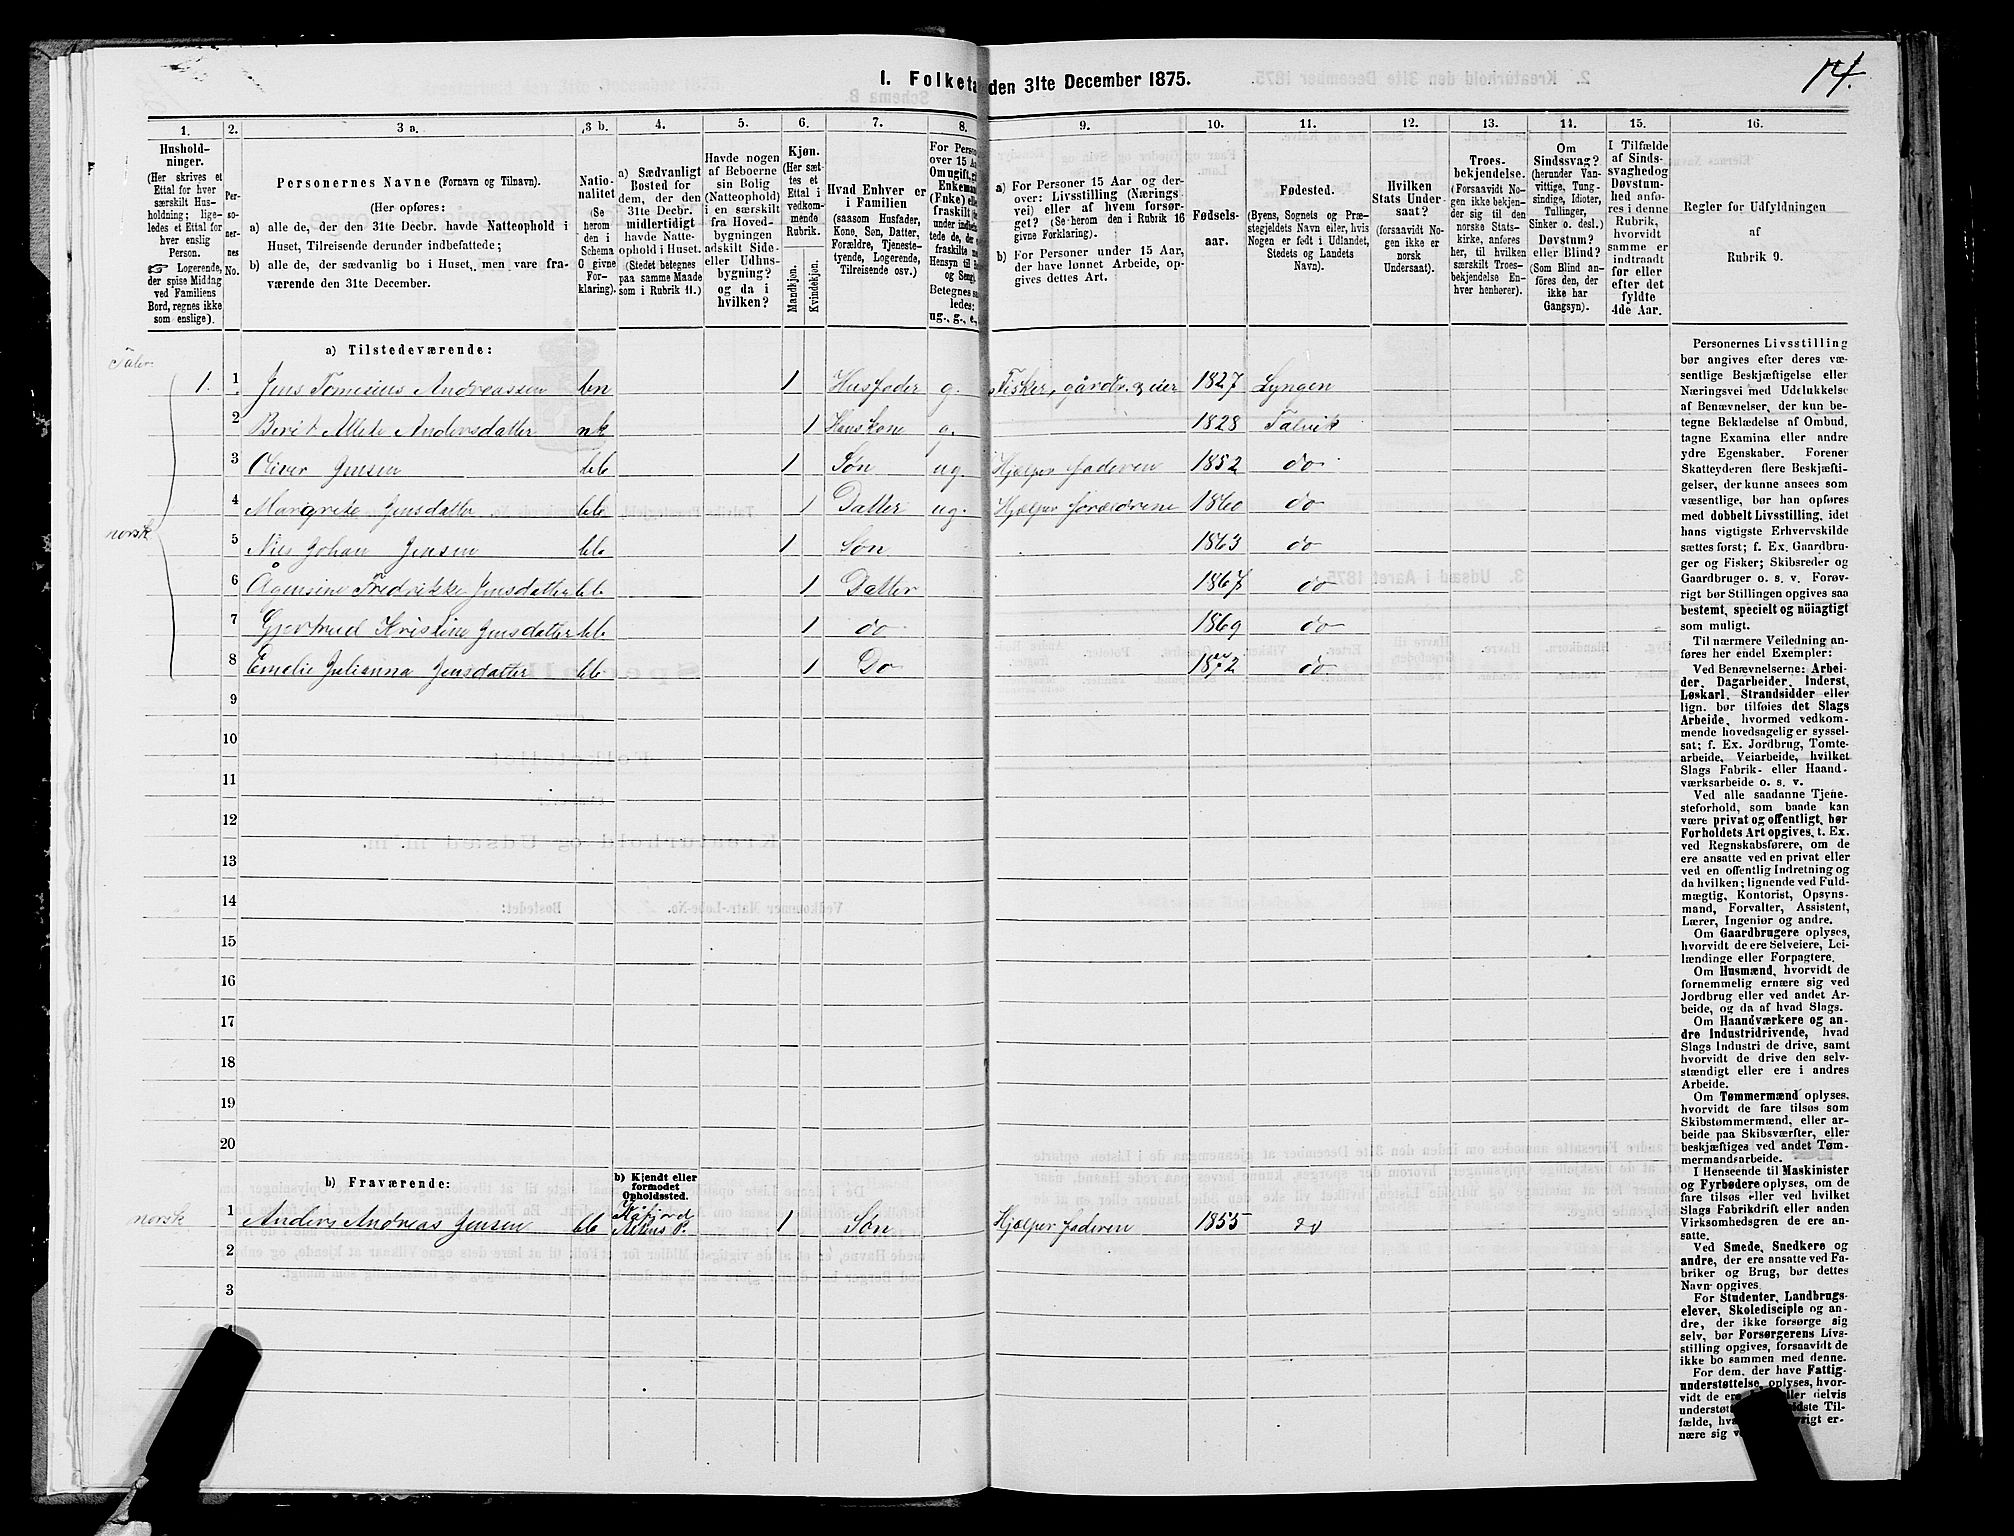 I. Folketa den 31te December 1875.
14.
1.
Hushold-
ninger.
(Her skrives et
Ettal for hver
særskilt Hus-
holdning; lige-
ledes et Ettal for
hver enslig
Person.
☞ Logerende,
der spise Middag
ved Familiens
Bord, regnes ikke
som enslige).
2.
Per-
so-
ner-
nes
No.
3 a.
Personernes Navne (Fornavn og Tilnavn).
(Her opføres:
a) alle de, der den 31te Decbr. havde Natteophold i
Huset, Tilreisende derunder indbefattede;
b) alle de, der sædvanlig bo i Huset, men vare fra-
værende den 31te December.
3 b.
Natio-
nalitet
(Se
herom
den i
Schema
G givne
For-
klaring).
4.
a) Sædvanligt
Bosted for
dem, der den
31te Decbr.
midlertidigt
havde Natte-
ophold i Huset.
(Stedet betegnes
paa samme Maade
som i Rubrik 11.)
5.
Havde nogen
af Beboerne
sin Bolig
(Natteophold)
i en særskilt
fra Hoved-
bygningen
adskilt Side-
eller Udhus-
bygning?
og da i
hvilken?
6.
Kjøn.
(Her sæt-
tes et
Ettal i
vedkom-
mende
Rubrik.
Mandkjøn.
Kvindekjøn.
7.
Hvad Enhver er
i Familien
(saasom Husfader,
Kone, Søn, Datter,
Forældre, Tjeneste-
tyende, Logerende,
Tilreisende osv.)
8.
For Person
over 15 Aa
Om ugift, gi
Enkeman
(Fnke) elle
fraskilt
under indbe
tede de, der
fraskilte m
Hensyn til B
og Seng)
Betegnes sa
ledes:
ug., g., e.,
9.
a) For Personer 15 Aar og der-
over: Livsstilling (Nærings-
vei) eller af hvem forsør-
get? (Se herom den i Rubrik 16
givne Forklaring).
b) For Personer under 15 Aar,
der have lønnet Arbeide, op-
gives dettes Art.
10.
Fødsels-
aar.
11.
Fødested.
(Byens, Sognets og Præ-
stegjeldets Navn eller, hvis
Nogen er født i Udlandet,
Stedets og Landets
Navn).
12.
Hvilken
Stats Under-
saat?
(forsaavidt No-
gen ikke er
norsk
Undersaat).
13.
Troes-
bekjendelse.
(Forsaavidt No-
gen ikke bekjen-
der sig til den
norske Stats-
kirke, anføres
her, til hvilken
særskilt Troes-
bekjendelse En-
hver henhører).
14.
Om
Sindssvag?
(herunder Van-
vittige, Tung-
sindige, Idioter,
Tullinger,
Sinker o. desl.)
Døvstum?
eller Blind?
(Som Blind an-
føres den, der
ikke har
Gangsyn).
15.
I Tilfælde
af Sinds-
svaghed og
Døvstum-
hed anfø-
res i denne
Rubrik,
hvorvidt
samme er
indtraadt
før eller
efter det
fyldte
4de Aar.
16.
Regler for Udfyldningen
af
Rubrik 9.
a) Tilstedeværende:
1. 1 Jens Tomesius Andreassen bn 1 Husfader g. Fisker, gårdbr. & eier 1827 Lyngen
2 Berit Allete Andersdatter nk 1 Huuskone g. 1828 Talvik
3 Oliver Jensen bb 1 Søn ug. Hjælper faderen 1852 do
4 Margrete Jensdatter bb 1 Datter ug. Hjælper forældrene 1860 do
norsk
5 Nils Johan Jensen bb 1 Søn 1863 do
6 Ågensine Fredrikke Jensdatter bb 1 Datter 1867 do
7 Gjertrud Kristine Jensdatter bb 1 do 1869 do
8 Emelie Julianna Jensdatter bb 1 Do 1872 do
9
10
11
12
13
14
15
16
17
18
19
20
b) Fraværende:
b) Kjendt eller
formodet
Opholdssted.
norsk 1 Anders Andreas Jensen bb Kåfjord Altens P. 1 Søn Hjælper faderen 1855 do
2
3
4
Personernes Livsstilling
bør angives efter deres væ-
sentlige Beskjæftigelse eller
Næringsvei med Udelukkelse
af Benævnelser, der kun be-
tegne Beklædelse af Ombud,
tagne Examina eller andre
ydre Egenskaber. Forener
Skatteyderen flere Beskjæfti-
gelser, der kunne ansees som
væsentlige, bør han opføres
med dobbelt Livsstilling, idet
hans vigtigste Erhvervskilde
sættes først; f. Ex. Gaardbru-
ger og Fisker; Skibsreder og
Gaardbruger o. s. v. Forøv-
rigt bør Stillingen opgives saa
bestemt, specielt og nöiagtigt
som muligt.
Til nærmere Veiledning an-
føres her endel Exempler:
Ved Benævnelserne: Arbei-
der, Dagarbeider, Inderst,
Løskarl, Strandsidder eller
lign. bør tilføies det Slags
Arbeide, hvormed vedkom-
mende hovedsagelig er syssel-
sat; f. Ex. Jordbrug, Tomte-
arbeide, Veiarbeide, hvilket
Slags Fabrik- eller Haand-
værksarbeide o. s. v.
Ved alle saadanne Tjene-
steforhold, som baade kan
være privat og offentligt, bør
Forholdets Art opgives, t. Ex.
ved Regnskabsførere, om de
ere ansatte ved en privat eller
ved en offentlig Indretning og
da hvilken; lignende ved Fuld-
mægtig, Kontorist, Opsyns-
mand, Forvalter, Assistent,
Lærer, Ingeniør og andre.
Om Gaardbrugere oplyses,
hvorvidt de ere Selveiere, Lei-
lændinge eller Forpagtere.
Om Husmænd, hvorvidt de
fornemmelig ernære sig ved
Jordbrug eller ved andet Ar-
beide, og da af hvad Slags.
Om Haandværkere og an-
dre Industridrivende, hvad
Slags Industri de drive, samt
hvorvidt de drive den selv-
stændigt eller ere i andres
Arbeide.
Om Tømmermænd oplyses,
hvorvidt de fare tilsøs som
Skibstømmermænd, eller ar-
beide paa Skibsværfter, eller
beskjæftiges ved andet Tøm-
mermandsarbeide.
I Henseende til Maskinister
og Fyrbødere oplyses, om de
fare tilsøs eller ved hvilket
Slags Fabrikdrift eller anden
Virksomhedsgren de ere an-
satte.
Ved Smede, Snedkere og
andre, der ere ansatte ved Fa-
briker og Brug, bør dettes
Navn opgives.
For Studenter, Landbrugs-
elever, Skoledisciple og an-
dre, der ikke forsørge sig
selv, bør Forsørgerens Livs-
stilling opgives, forsaavidt de
ikke bo sammen med denne.
For dem, der have Fattig-
understøttelse, oplyses, hvor-
vidt de ere ller delvis
understøt dste Til-
fælde, hv vrigt er-
nære sig v